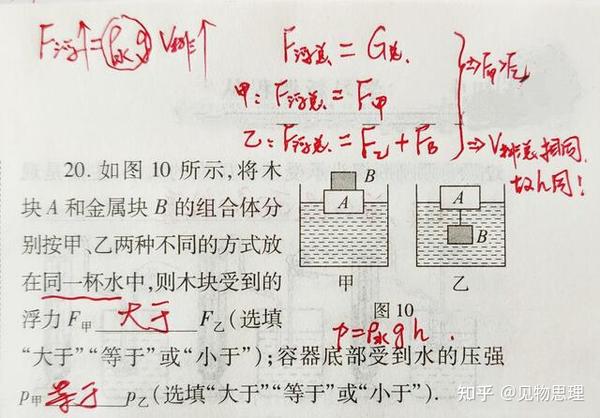 F浮↑=ρ水g V排↑
F浮总 = G总.
甲: F浮总 = F甲
乙: F浮总 = F乙 + FB
⇒F甲>F乙
⇒V排总相同.
故h同!
20. 如图 10 所示,将木
块 A 和金属块 B 的组合体分
别按甲、乙两种不同的方式放
在同一杯水中,则木块受到的
浮力 F甲 大于 F乙(选填
“大于”“等于”或“小于”);容器底部受到水的压强
p甲 等于 p乙(选填“大于”“等于”或“小于”).
B
A
甲
A
B
乙
图 10
p=ρ水gh.
知乎 @见物思理